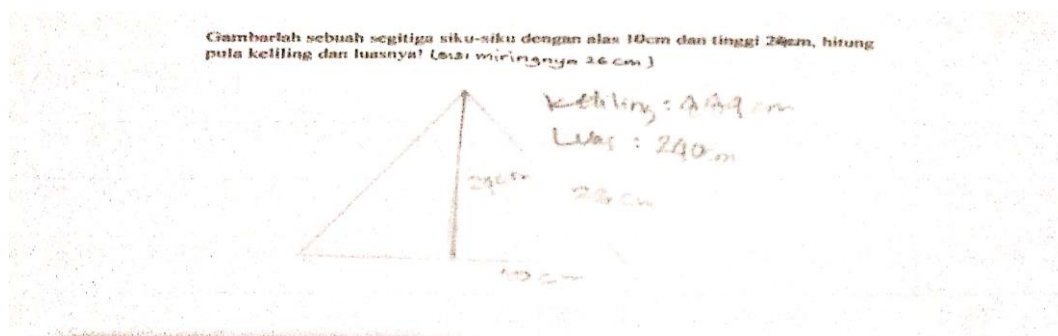 Gambarlah sebuah segitiga siku-siku dengan alas 10cm dan tinggi 24cm, hitung
pula keliling dan luasnya! (sisi miringnya 26 cm)
Keliling : cm
Luas : 240 cm
24cm
26 cm
10 cm